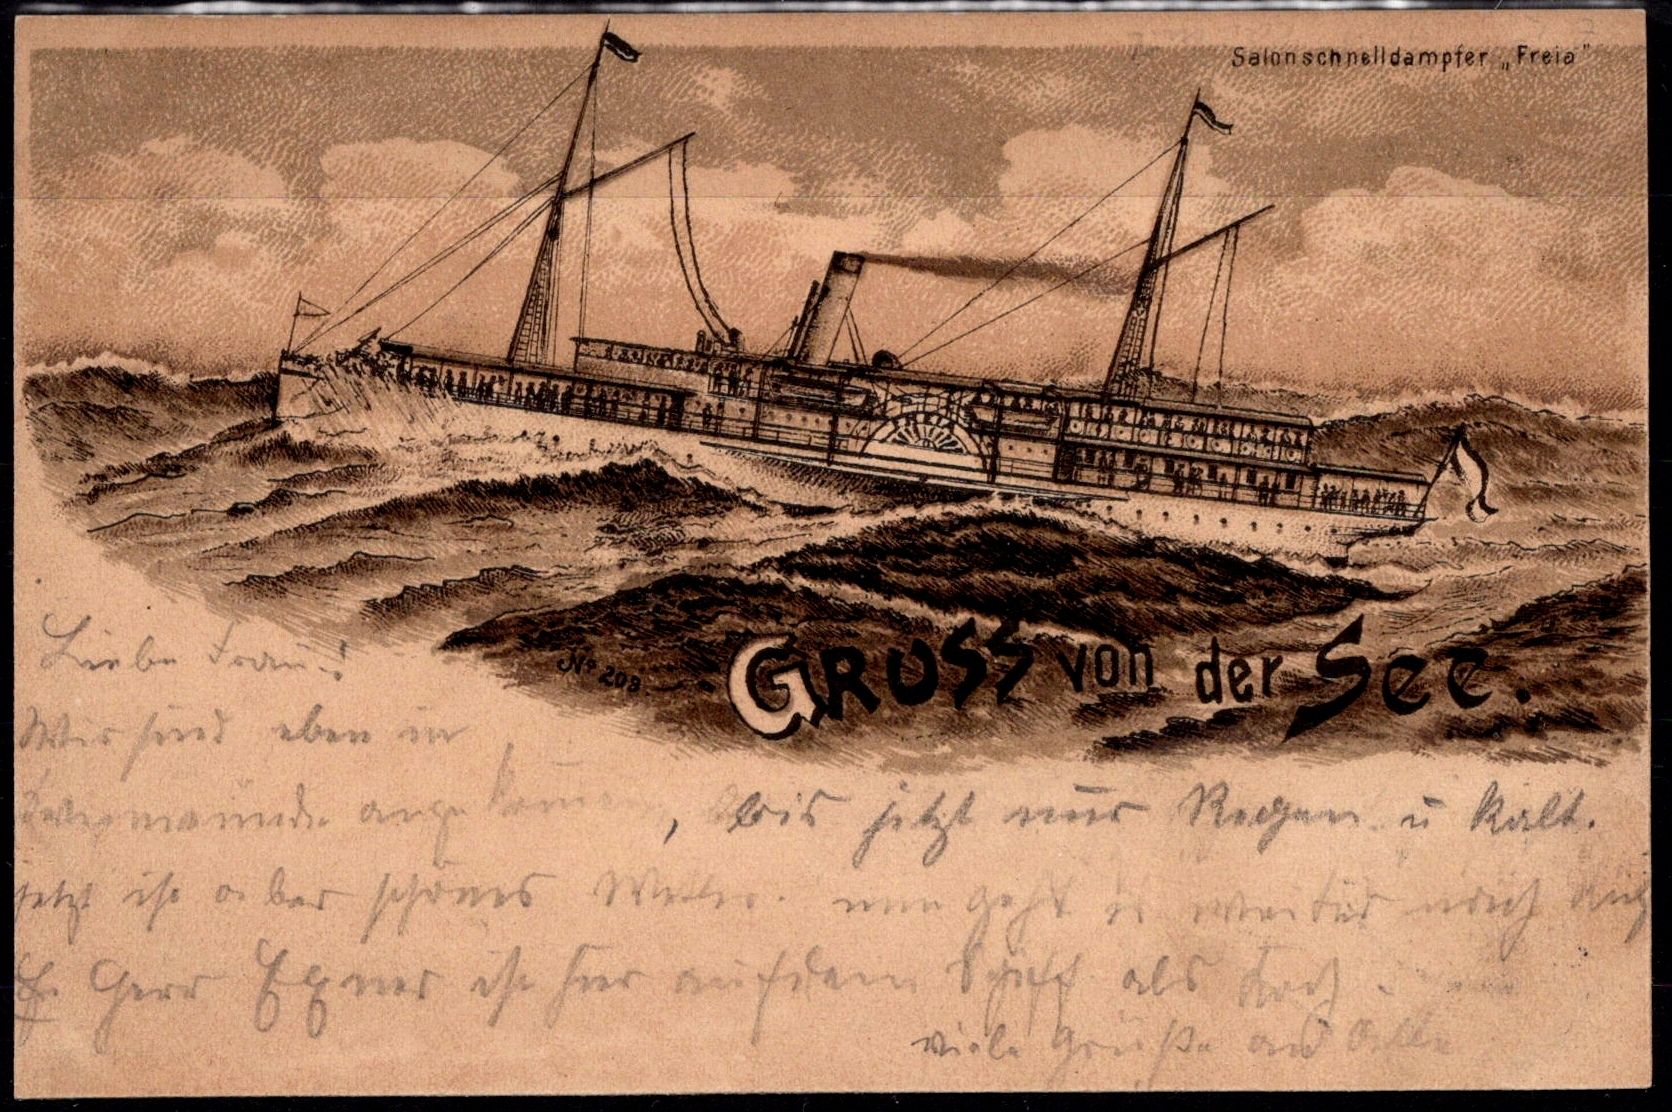 Salonschnelldampfer „Freia"
No 208.
Gruss von der See.
Liebe Frau!
Wir sind eben in
angekommen, bis jetzt nur Regen u kalt.
jetzt ist aber schönes Wetter. nun geht es weiter nach
Herr ist hier auf dem Schiff als Koch.
viele Grüße an Alle